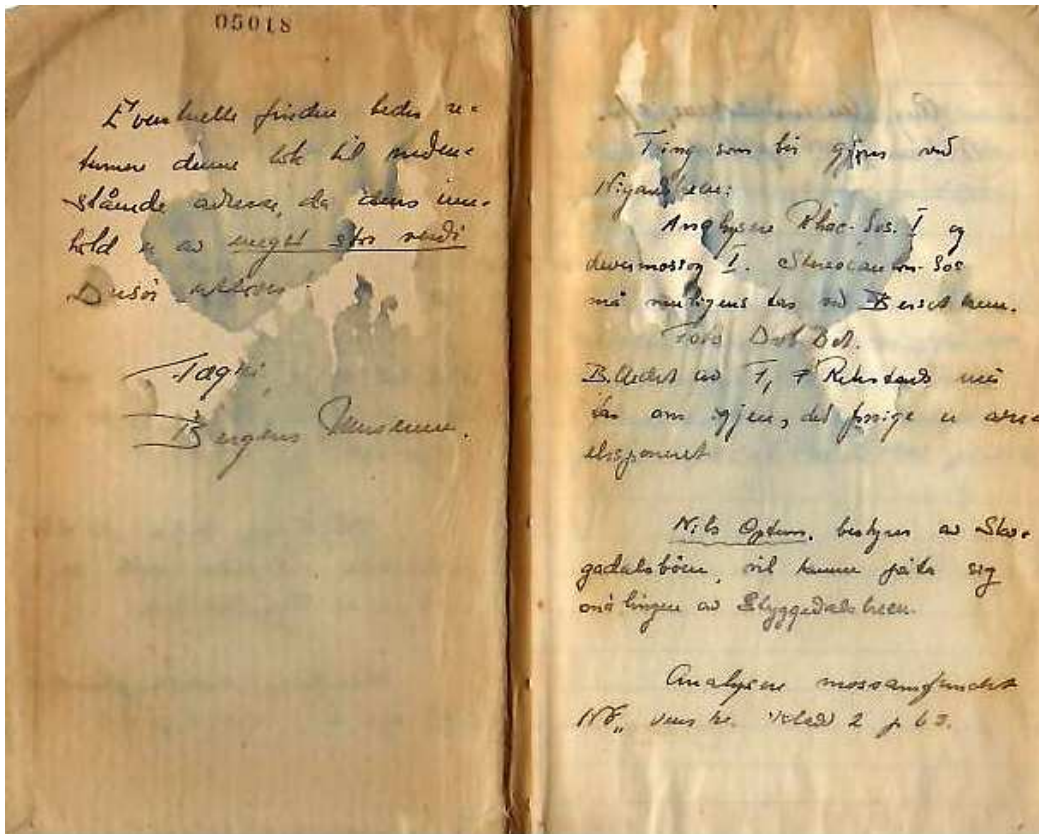 05018
Eventuelle finder bedes re-
turnere denne bok til neden-
stående adresse, da dens inn-
hold er av meget stor verdi
Dusør utloves!
Fægri,
Bergens Museum.
Ting som bør gjøres ved
Nigardsbreen:
Analysere Rhac. Sos. I og
I. Stereocaulon-Sos
må muligens tas ved Bersetbreen.
Foto
av Rekstads må
tas om igjen, det forrige er
eksponert
Nils Optun, bestyrer av Sko-
gadalsbøen, vil kunne påta sig
målingen av Styggedalsbreen.
Analysere mossamfundet
2 p 63.